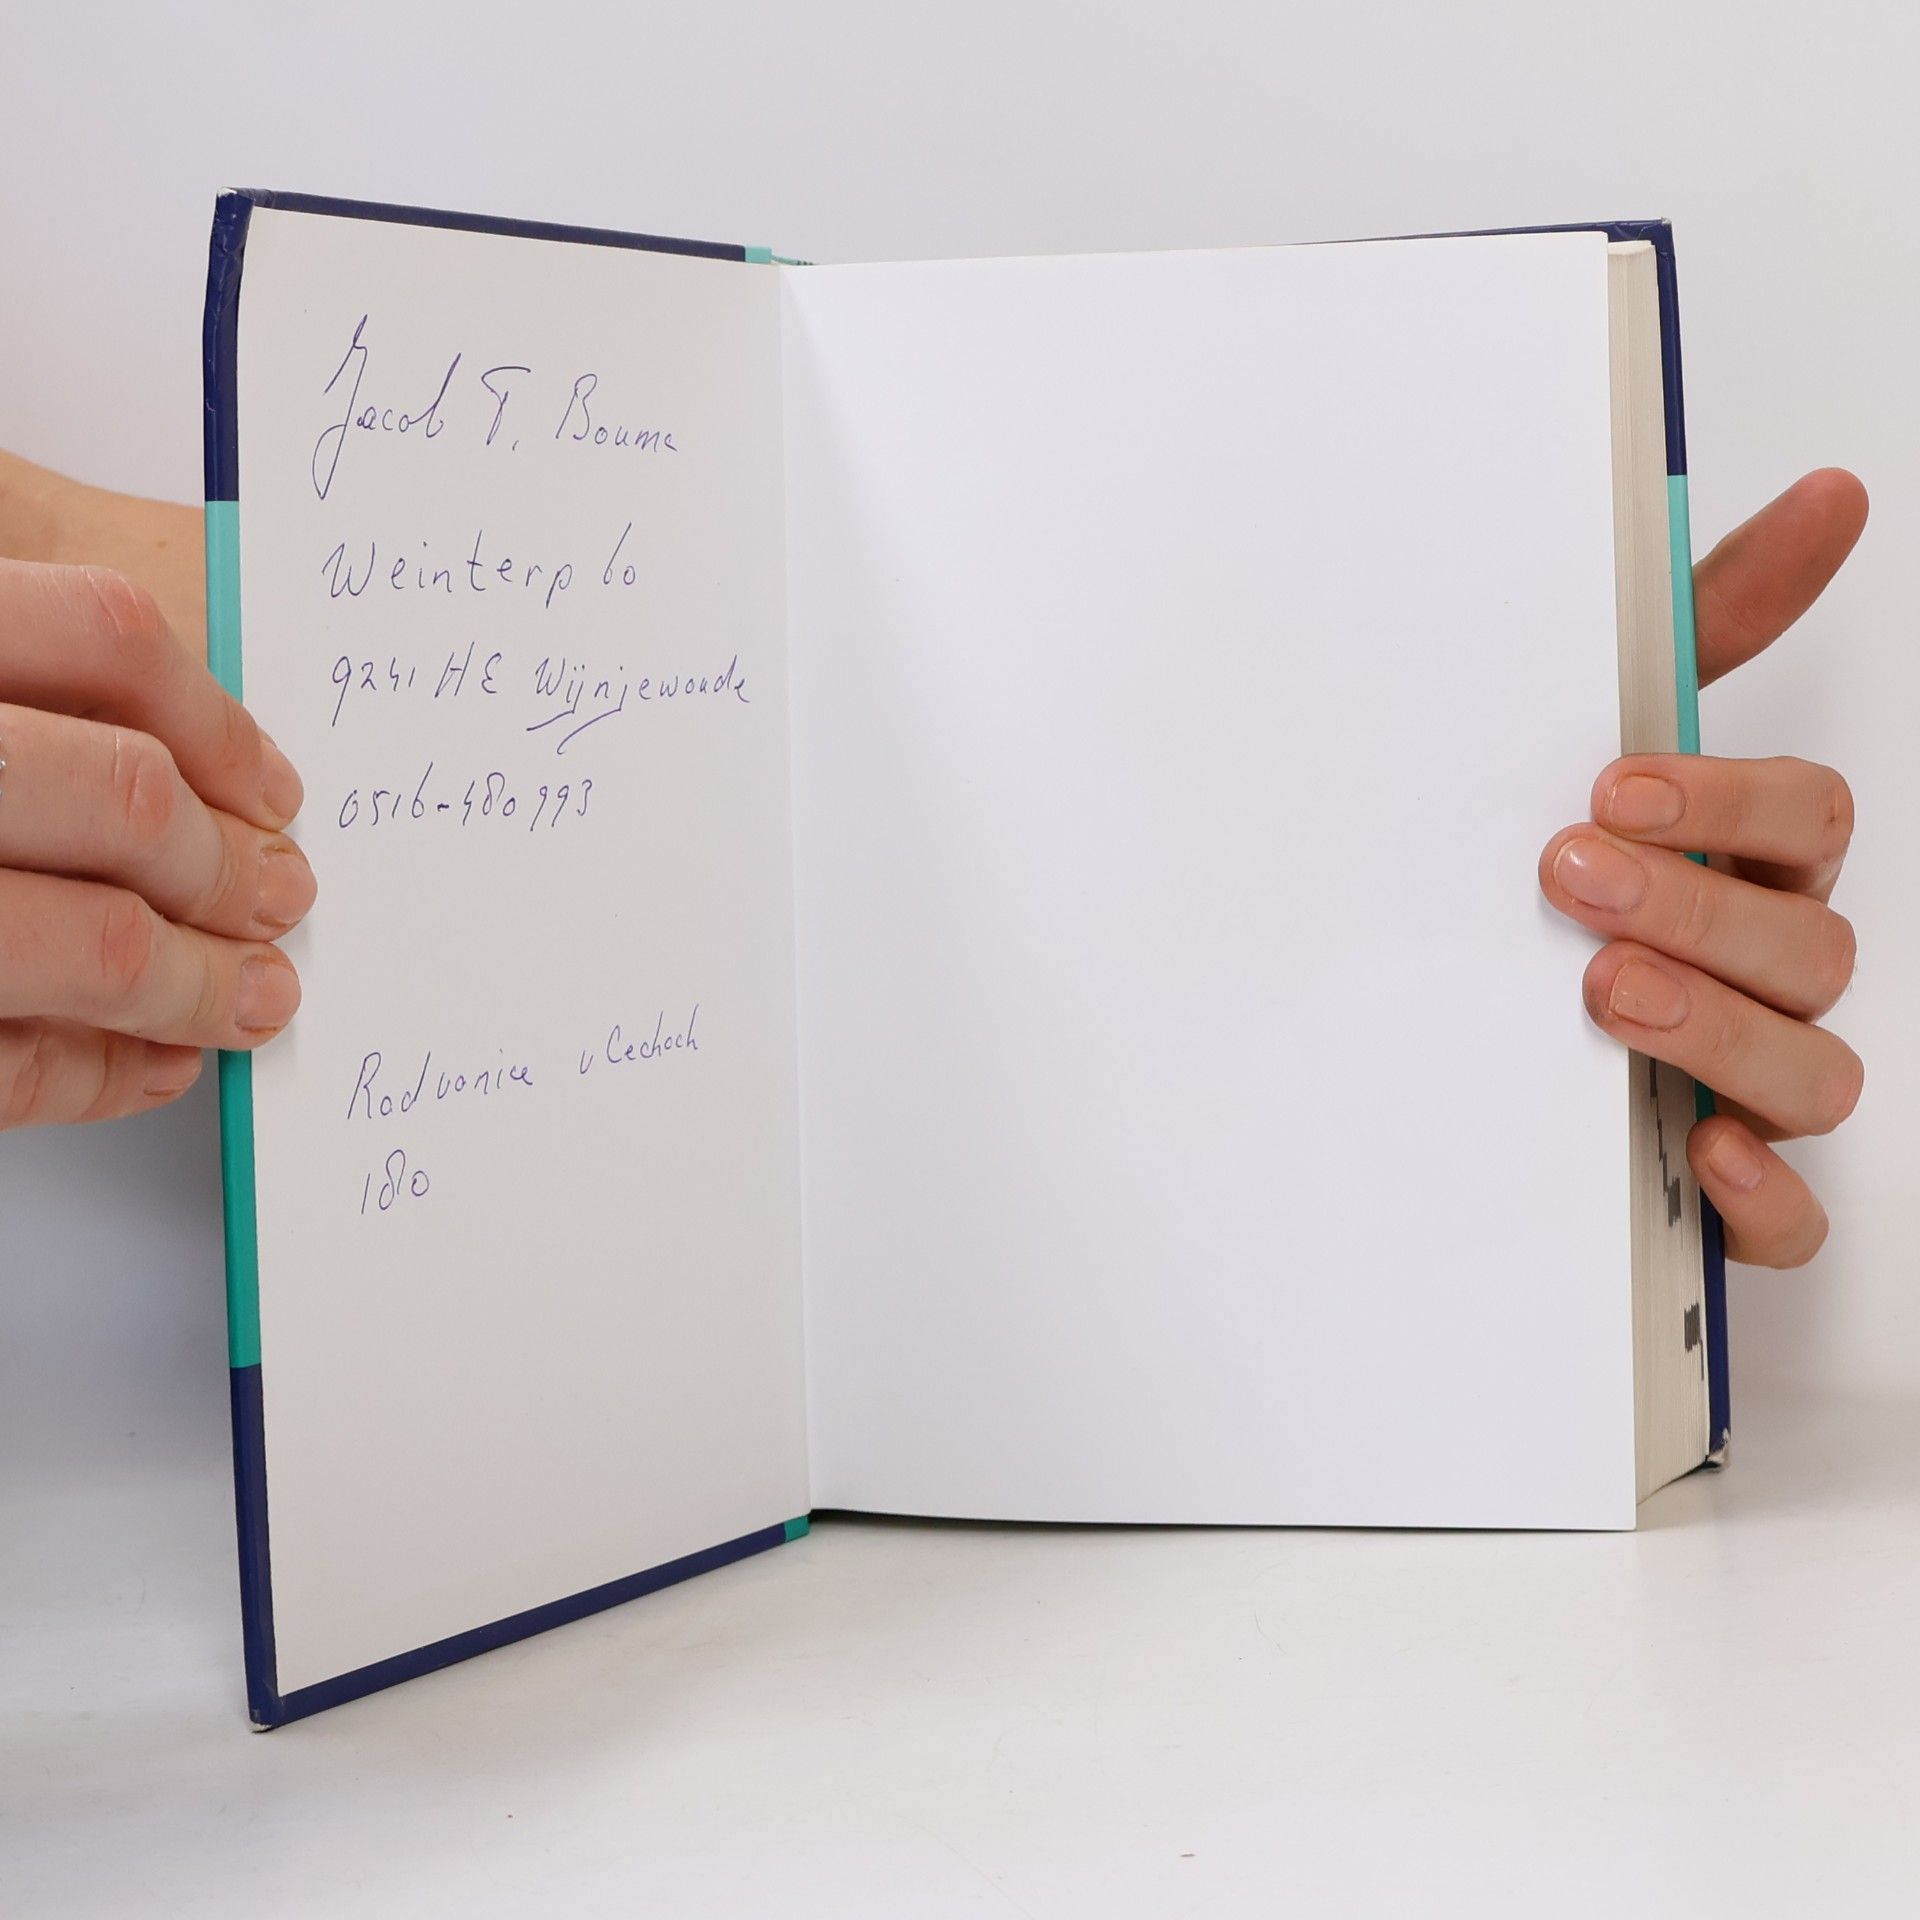 Jacob T. Bouma
Weinterp 60
9241 HE Wijnjewoude
0516-480993
Radvanice v Cechach
180